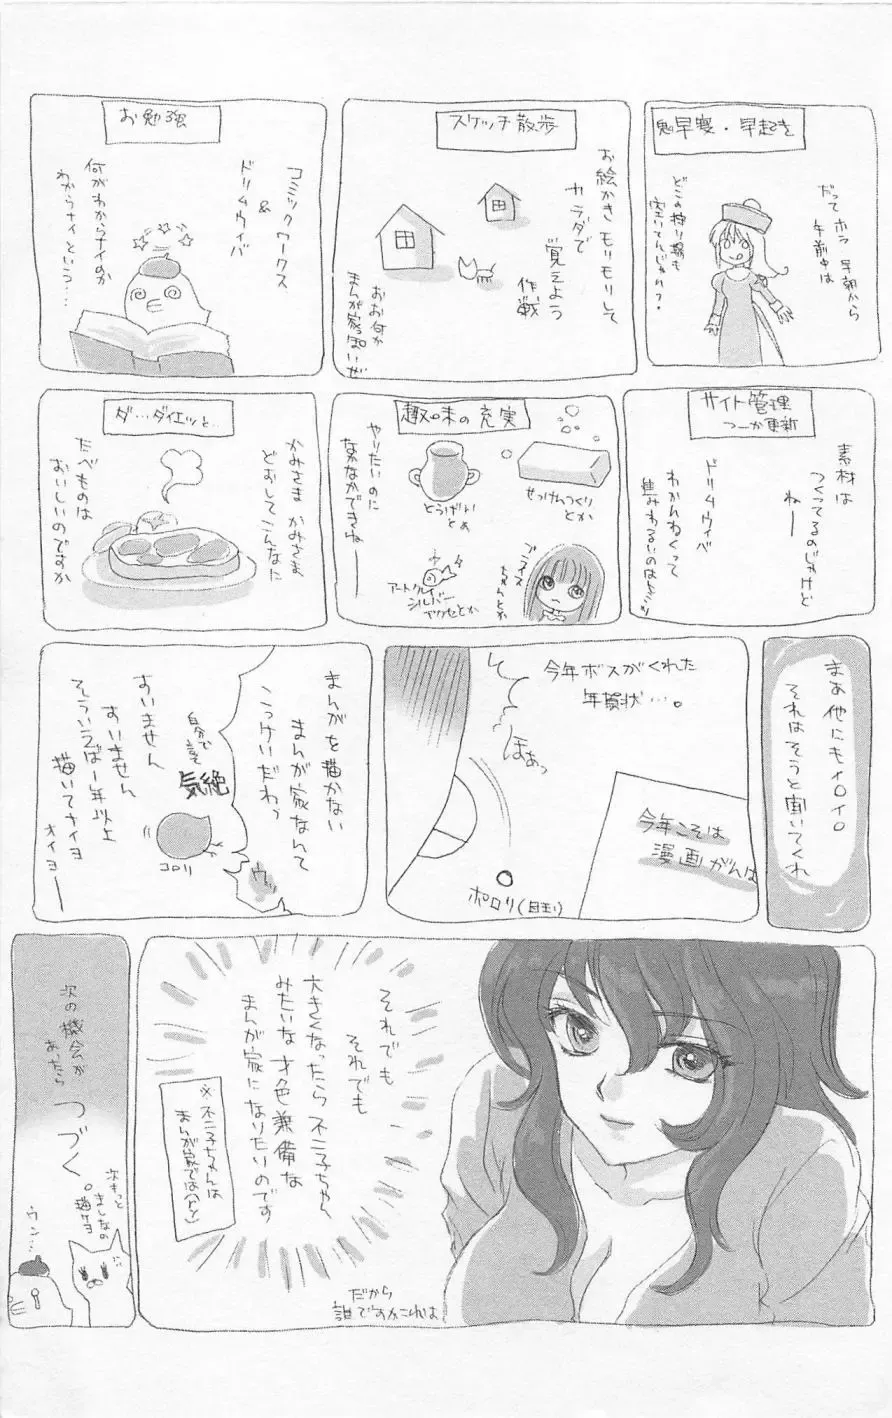 鬼早寝・早起き
だって ホラ 早朝から
午前中は
どこの狩り場も
空いてんじゃん？
スケッチ散歩
お絵かきモリモリして
カラダで
覚えよう
作戦
おお何か
まんが家っぽいぜ
お勉強
コミックワークス
&
ドリムウィバ
何がわからナイのか
わからナイという…
サイト管理
つーか更新
素材は
つくってるのじゃけど
ねー
ドリムウィバ
わかんねくって
趣味の充実
せっけんつくり
とか
とうげい
とか
やりたいのに
なかなかできねー
アートクレイ
シルバー
アクセとか
ダ…ダイエッと…
かみさま かみさま
どおしてこんなに
たべものは
おいしいのですか
まあ他にもイロイロ
それはそうと聞いてくれ
今年ボスがくれた
年賀状…。
ほぁっ
今年こそは
漫画がんば
ポロリ(目玉)
まんがを描かない
まんが家なんて
こっけいだわっ
ウッ
自分で
言って
気絶
コロリ
すいません
すいません
そういえば1年以上
描いてナイヨ
オイヨー
それでも
それでも
大きくなったら不二子ちゃん
みたいな才色兼備な
まんが家になりたいのです
※不二子ちゃんは
まんが家では(ry)
だから
誰ですかこれは
次の機会が
あったら
つづく。
次もっと
ましなの
描けヨ
ウン…